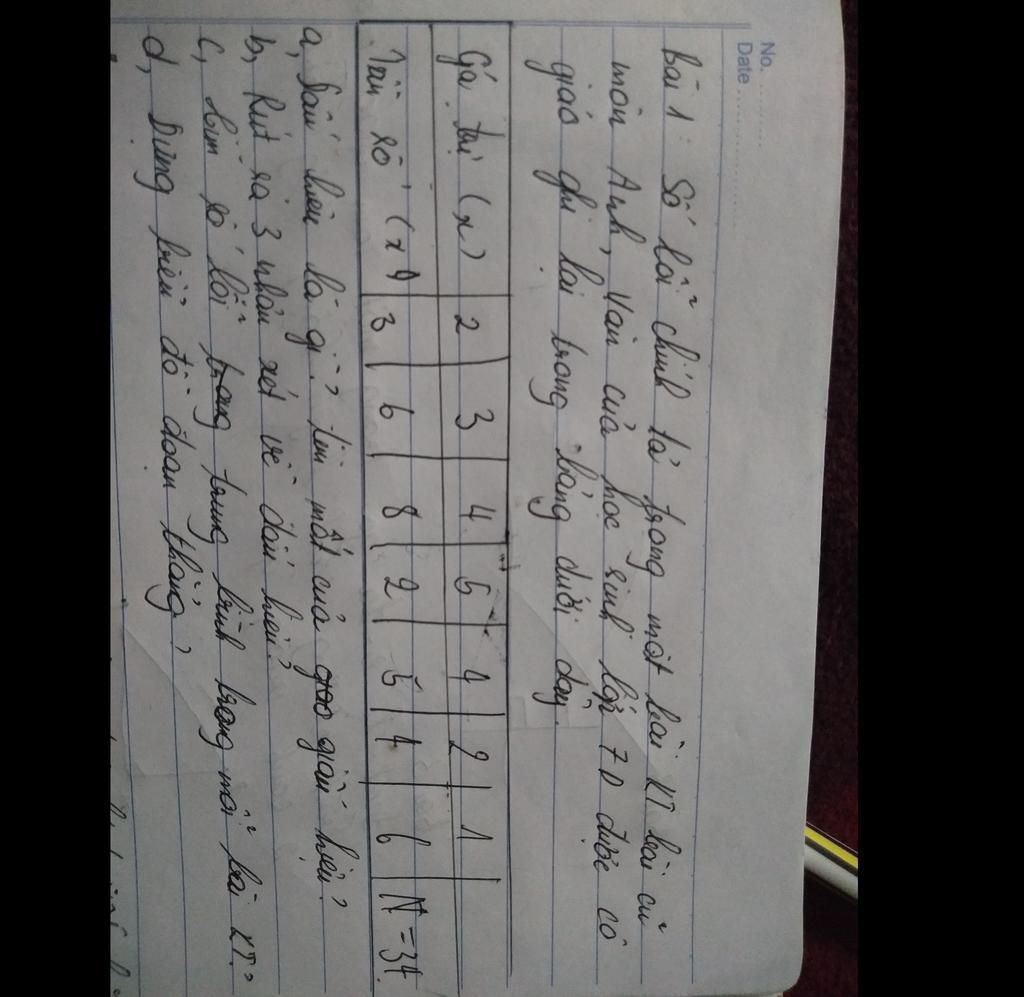 No. ............
Date ............
Bài 1: Số lỗi chính tả trong một bài KT bài cũ
môn Anh, Văn của học sinh lớp 7D được cô
giáo ghi lại trong bảng dưới đây.
Gá trị (x) 2 3 4 5 4 2 1
Tần số (x) 3 6 8 2 5 4 6 N=34
a, Dấu hiệu là gì? tìm mốt của giấu hiệu?
b, Rút ra 3 nhận xét về dấu hiệu?
c, tìm số lỗi trong trung bình trong mỗi bài KT?
d, Dựng biểu đồ đoạn thẳng?